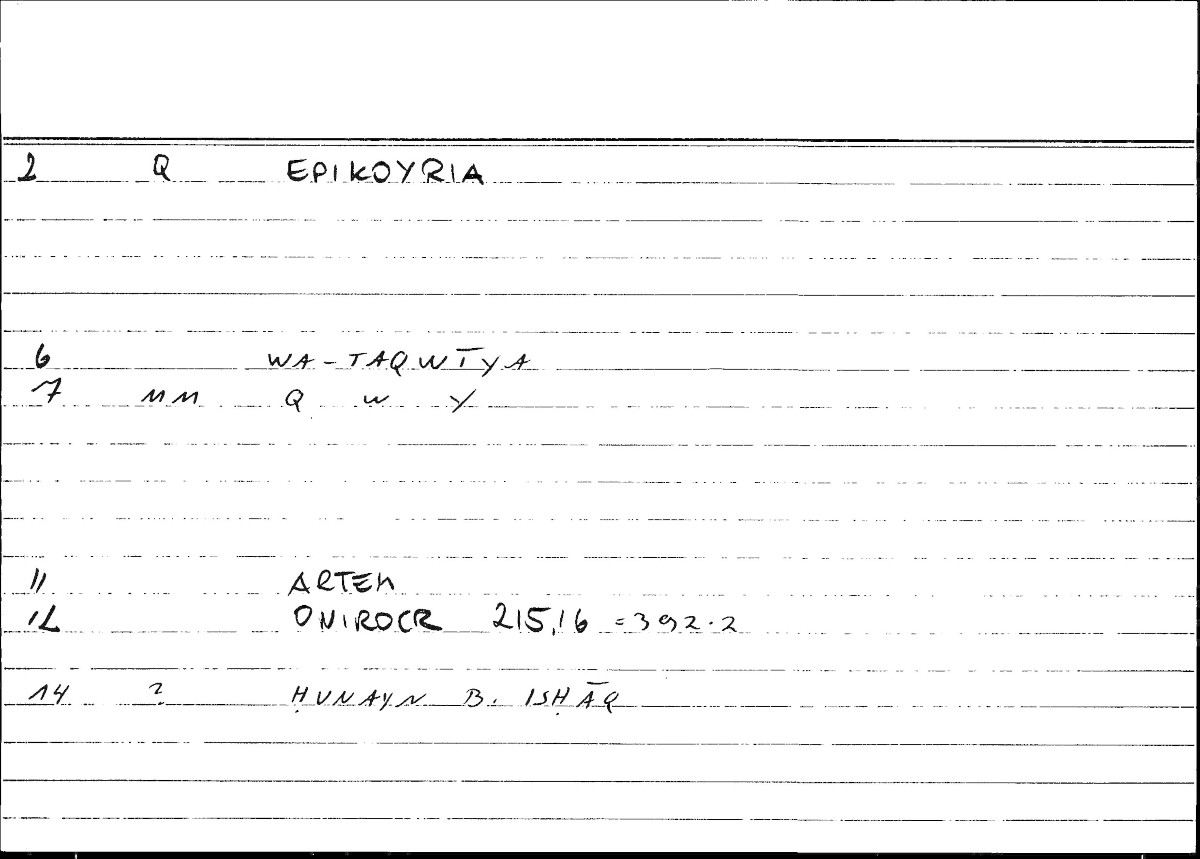 2 Q EPIKOYRIA
6 WA-TAQWĪYA
7 MM Q W Y
11 ARTEM
12 ONIROCR 215,16 =392.2
14 ? ḤUNAYN B. ISḤĀQ